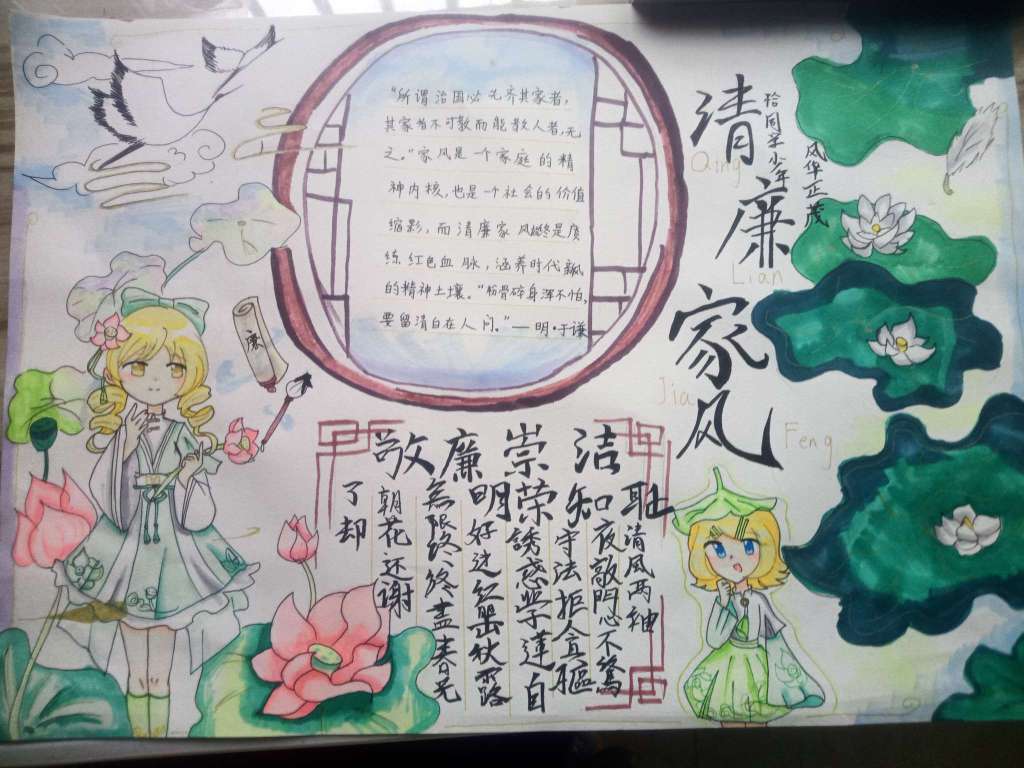 清廉家风
Qing
Lian
Jia
Feng
同学少年
风华正茂
"所谓治国必先齐其家者,
其家者不可教而能教人者,无
之。"家风是一个家庭的精
神内核,也是一个社会的价值
缩影,而清廉家风终是赓
练红色血脉,涵养时代
的精神土壤。"粉骨碎身浑不怕,
要留清白在人间。"——明·于谦
廉
敬廉崇洁
明荣知耻
清风两
夜敲門心不驚
守法拒
誘惑学蓮自
好这红秋露
無限终终盖春光
朝花还谢
了却